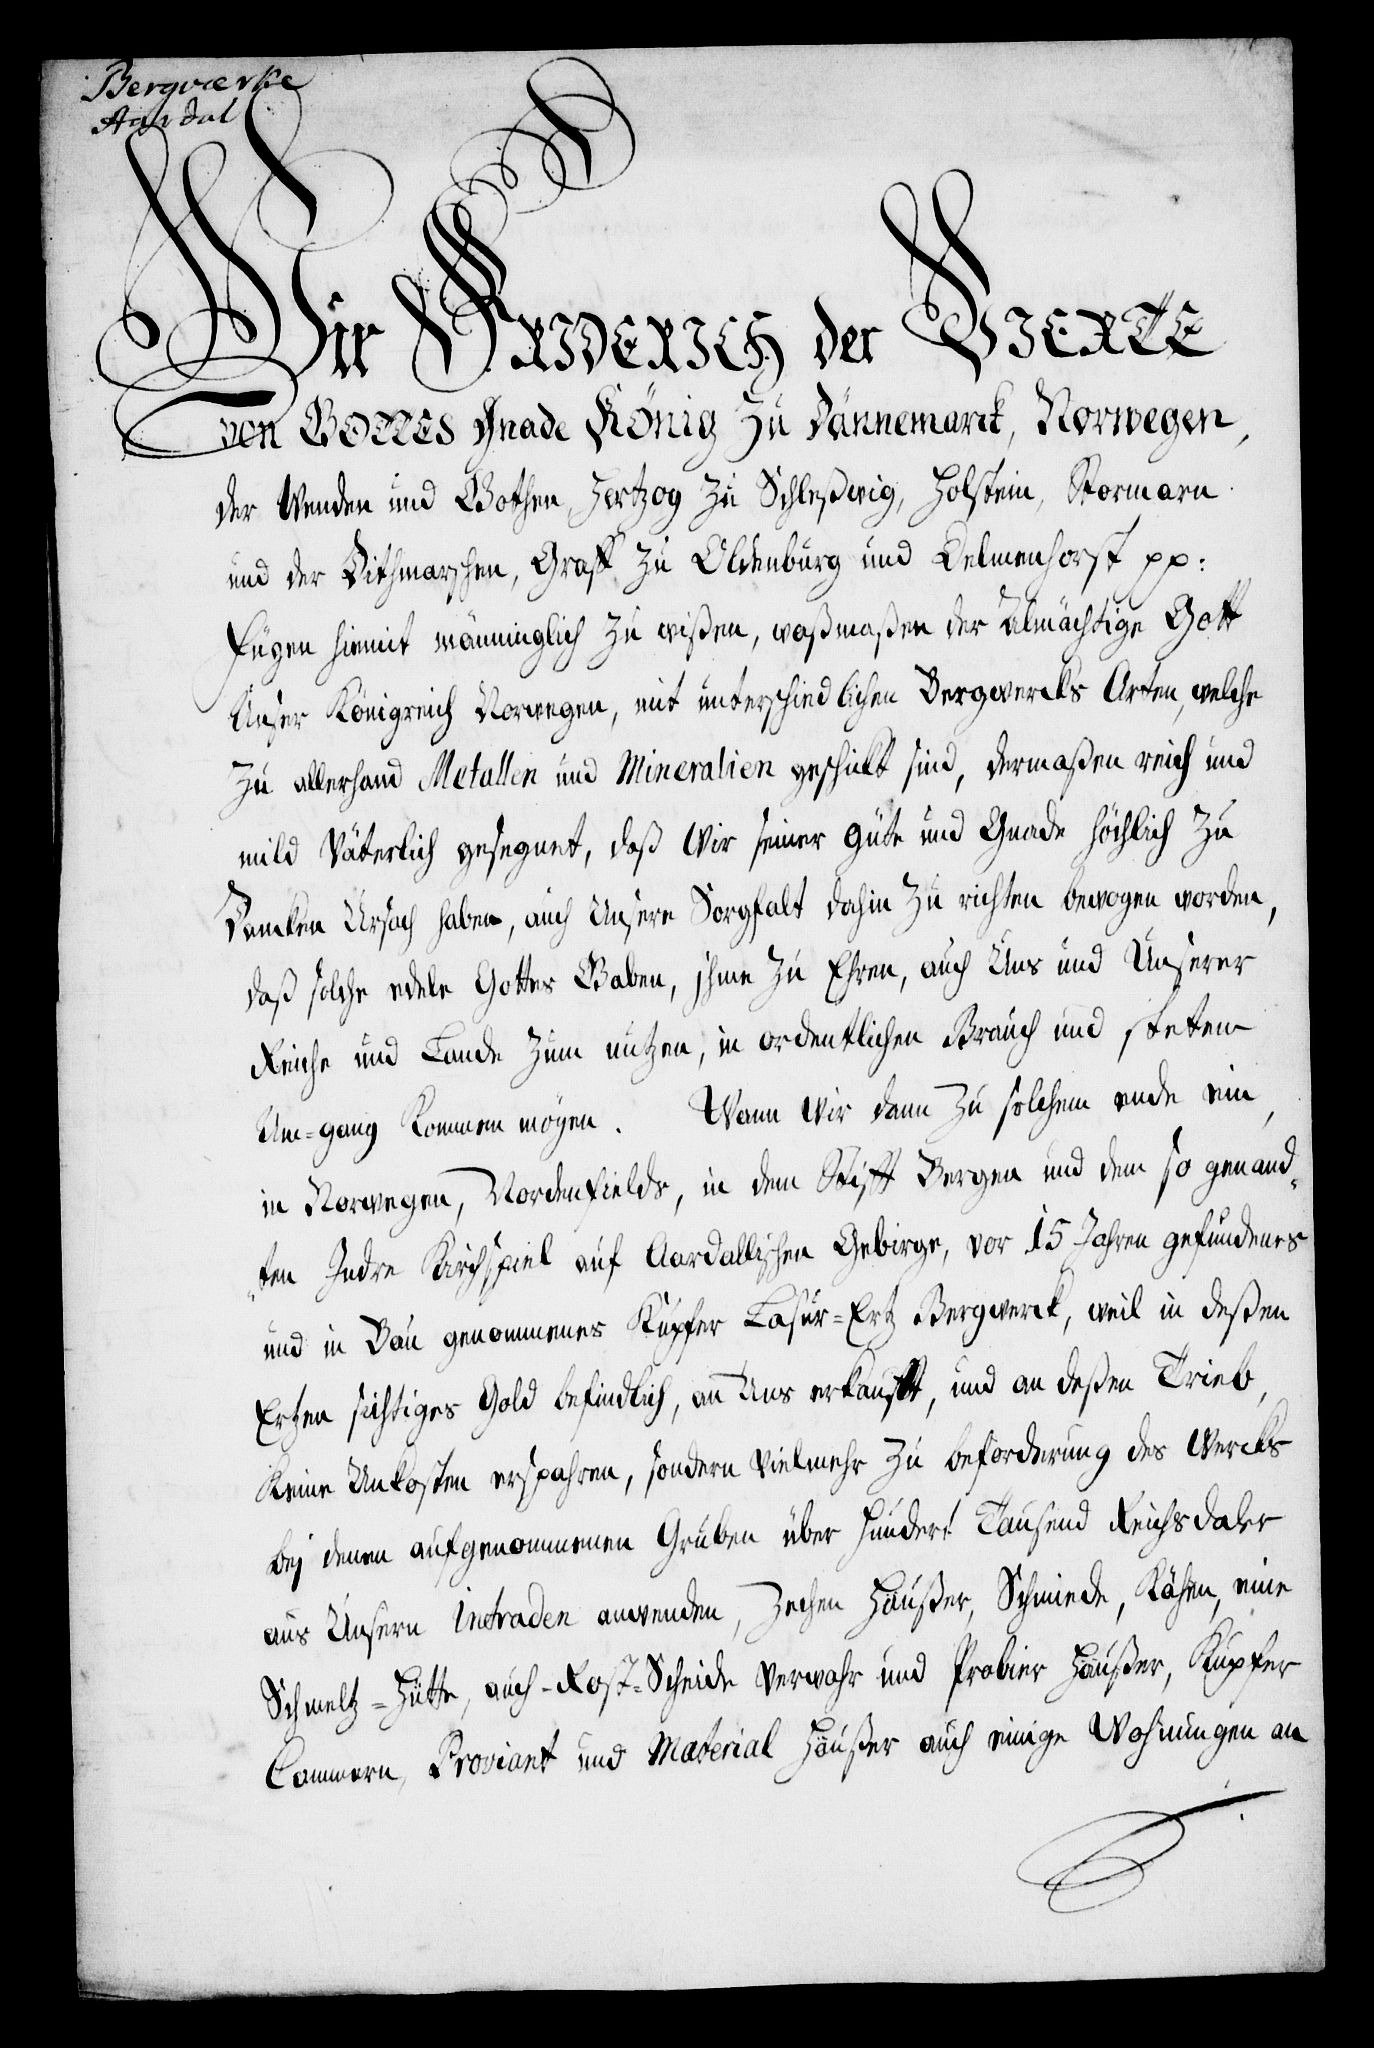 Bergværke
Aardal
Wir FRIDERICH der VIERTE
von GOTTES Gnade König Zu Dännemarck, Norwegen,
der Wenden und Gothen, Hertzog Zu Schleßwig, Holstein, Stormarn
und der Dithmarschen, Graff Zu Oldenburg und Delmenhorst pp:
Fügen hiemit männinglich Zu wißen, waßmaßen der Almächtige Gott
Unser Königreich Norwegen, mit unterschiedlichen Bergwercks Arten, welche
Zu allerhand Metallen und Mineralien geschickt sind, dermaßen reich und
mild Väterlich gesegnet, daß Wir seiner Güte und Gnade höchlich Zu
Dancken Ursach haben, auch Unsere Sorgfalt dahin Zu richten bewogen worden,
daß solche edele Gottes Gaben, jhme Zu Ehren, auch Uns und Unserer
Reiche und Lande Zum nutzen, in ordentlichen Brauch und steten
Um=gang Kommen mögen. Wann Wir dann Zu solchem ende ein,
in Norwegen, Nordenfields, in dem Stifft Bergen und dem so genand„
„ten Indre Kirchspiel auf Aardallischen Gebirge, vor 15 Jahren gefundenes
und in Bau genommenes Kupfer Lasur=Ertz Bergwerck, weil in deßen
Ertzen sichtiges Gold befindlich, an Uns erkaufft, und an deßen Trieb,
Keine Unkosten erspahren, sondern Vielmehr Zu beforderung des Wercks
bej denen aufgenommenen Gruben über hundert Tausend Reichsdaler
aus Unsern Intraden anwenden, Zechen Häußer, Schmiede, Kähen, eine
Schmeltz=Hütte, auch-Rost=Scheide Verwahr und Probier Häußer, Kupfer
Cammern, Proviant und Material Häußer auch einige Wohnungen an